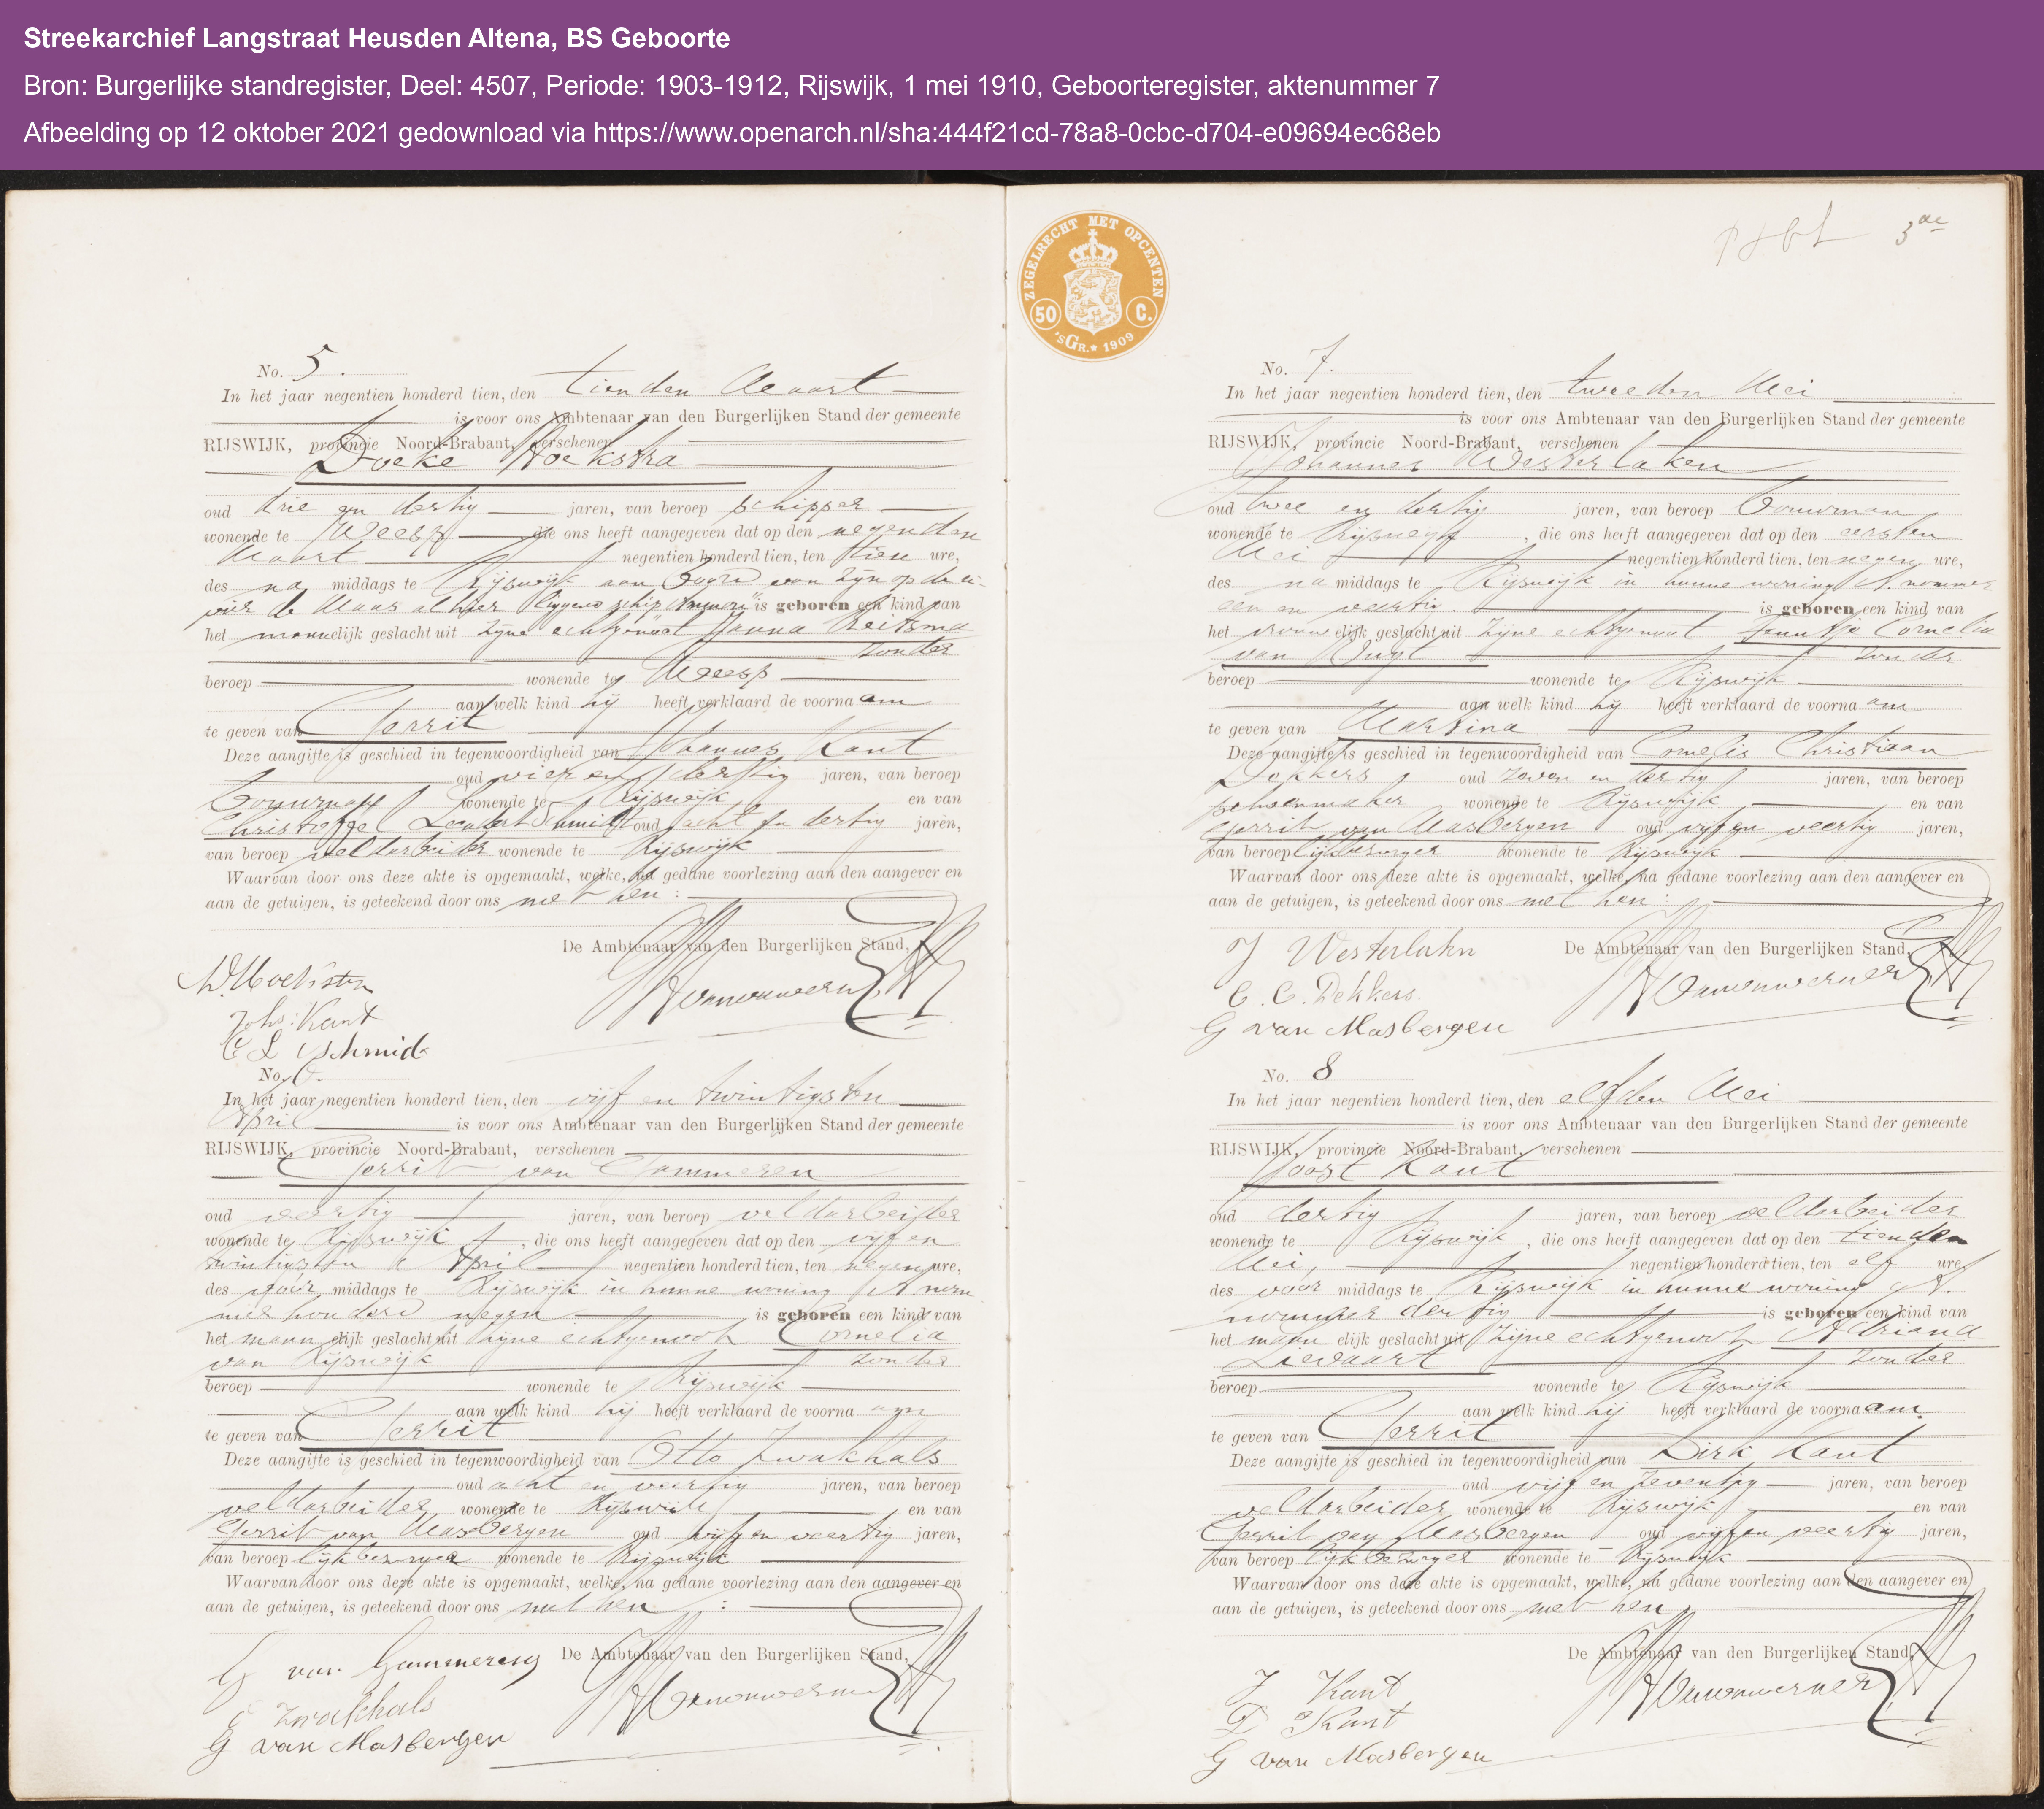 Streekarchief Langstraat Heusden Altena, BS Geboorte
Bron: Burgerlijke standregister, Deel: 4507, Periode: 1903-1912, Rijswijk, 1 mei 1910, Geboorteregister, aktenummer 7
Afbeelding op 12 oktober 2021 gedownload via https://www.openarch.nl/sha:444f21cd-78a8-0cbc-d704-e09694ec68eb
No. 5.
In het jaar negentien honderd tien, den tienden Maart
is voor ons Ambtenaar van den Burgerlijken Stand der gemeente
RIJSWIJK, provincie Noord-Brabant, verschenen
Doeke Hoekstra
oud drie en dertig jaren, van beroep schipper
wonende te Weesp die ons heeft aangegeven dat op den negenden
Maart negentien honderd tien, ten tien ure,
des na middags te Rijswijk aan boord van zijn op de ri-
vier de Maas alhier liggend schip is geboren een kind van
het mannelijk geslacht uit zijne echtgenoot Janna Reitsma
zonder
beroep wonende te Weesp
aan welk kind hij heeft verklaard de voornaam
te geven van Gerrit
Deze aangifte is geschied in tegenwoordigheid van Johannes Kant
oud vier en dertig jaren, van beroep
bouwman wonende te Rijswijk en van
Christoffel Leendert Schmidt oud acht en dertig jaren,
van beroep veldarbeider wonende te Rijswijk
Waarvan door ons deze akte is opgemaakt, welke, na gedane voorlezing aan den aangever en
aan de getuigen, is geteekend door ons met hen:
De Ambtenaar van den Burgerlijken Stand,
D. Hoekstra
Johs: Kant
C L Schmidt
No. 6.
In het jaar negentien honderd tien, den vijf en twintigsten
April is voor ons Ambtenaar van den Burgerlijken Stand der gemeente
RIJSWIJK, provincie Noord-Brabant, verschenen
Gerrit van Gammeren
oud veertig jaren, van beroep veldarbeider
wonende te Rijswijk, die ons heeft aangegeven dat op den vijf en
twintigsten April negentien honderd tien, ten negen ure,
des voor middags te Rijswijk in hunne woning A num
mer honderd negen is geboren een kind van
het mannelijk geslacht uit zijne echtgenoot Cornelia
van Rijswijk zonder
beroep wonende te Rijswijk
aan welk kind hij heeft verklaard de voornaam
te geven van Gerrit
Deze aangifte is geschied in tegenwoordigheid van Otto Zwakhals
oud acht en veertig jaren, van beroep
veldarbeider wonende te Rijswijk en van
Gerrit van Masbergen oud vijf en veertig jaren,
van beroep lijkbezorger wonende te Rijswijk
Waarvan door ons deze akte is opgemaakt, welke, na gedane voorlezing aan den aangever en
aan de getuigen, is geteekend door ons met hen:
De Ambtenaar van den Burgerlijken Stand,
G van Gammeren
Zwakhals
G van Masbergen
ZEGELRECHT MET OPCENTEN
50 C.
'sGR. * 1909
3de
No. 7.
In het jaar negentien honderd tien, den tweeden Mei
is voor ons Ambtenaar van den Burgerlijken Stand der gemeente
RIJSWIJK, provincie Noord-Brabant, verschenen
Johannes Westerlaken
oud twee en dertig jaren, van beroep bouwman
wonende te Rijswijk, die ons heeft aangegeven dat op den eersten
Mei negentien honderd tien, ten negen ure,
des na middags te Rijswijk in hunne woning A. nommer
een en veertig. is geboren een kind van
het vrouwelijk geslacht uit zijne echtgenoot Cornelia
van zonder
beroep wonende te Rijswijk
aan welk kind hij heeft verklaard de voornaam
te geven van Martina
Deze aangifte is geschied in tegenwoordigheid van Cornelis Christiaan
Dekkers oud zeven en dertig jaren, van beroep
schoenmaker wonende te Rijswijk en van
Gerrit van Masbergen oud vijf en veertig jaren,
van beroep lijkbezorger wonende te Rijswijk
Waarvan door ons deze akte is opgemaakt, welke, na gedane voorlezing aan den aangever en
aan de getuigen, is geteekend door ons met hen:
De Ambtenaar van den Burgerlijken Stand,
J Westerlaken
C. C. Dekkers.
G van Masbergen
No. 8
In het jaar negentien honderd tien, den elfden Mei
is voor ons Ambtenaar van den Burgerlijken Stand der gemeente
RIJSWIJK, provincie Noord-Brabant, verschenen
Joost Kant
oud dertig jaren, van beroep veldarbeider
wonende te Rijswijk, die ons heeft aangegeven dat op den tienden
Mei, negentien honderd tien, ten elf ure
des voor middags te Rijswijk in hunne woning A.
nommer dertig is geboren een kind van
het mannelijk geslacht uit zijne echtgenoot Adriana
Lievaart zonder
beroep wonende te Rijswijk
aan welk kind hij heeft verklaard de voornaam.
te geven van Gerrit
Deze aangifte is geschied in tegenwoordigheid van Dirk Kant
oud vijf en zeventig jaren, van beroep
veldarbeider wonende te Rijswijk en van
Gerrit van Masbergen oud vijf en veertig jaren,
van beroep lijkbezorger wonende te Rijswijk
Waarvan door ons deze akte is opgemaakt, welke, na gedane voorlezing aan den aangever en
aan de getuigen, is geteekend door ons met hen
De Ambtenaar van den Burgerlijken Stand,
J Kant
D Kant
G van Masbergen